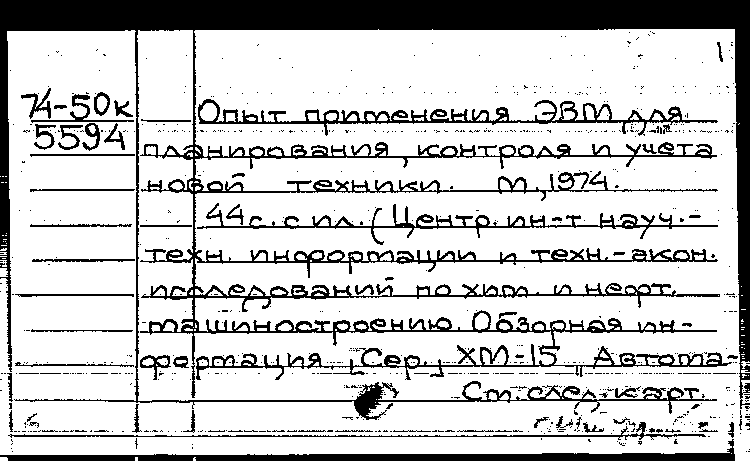 1
74-50к
5594
Опыт применения ЭВМ для
планирования, контроля и учета
новой техники. М., 1974.
44с. с ил. (Центр. ин-т науч.-
техн. информации и техн.-экон.
исследований по хим. и нефт.
машиностроению. Обзорная ин-
формация. [Сер.] ХМ-15 „Автома-
См. след. карт.
6